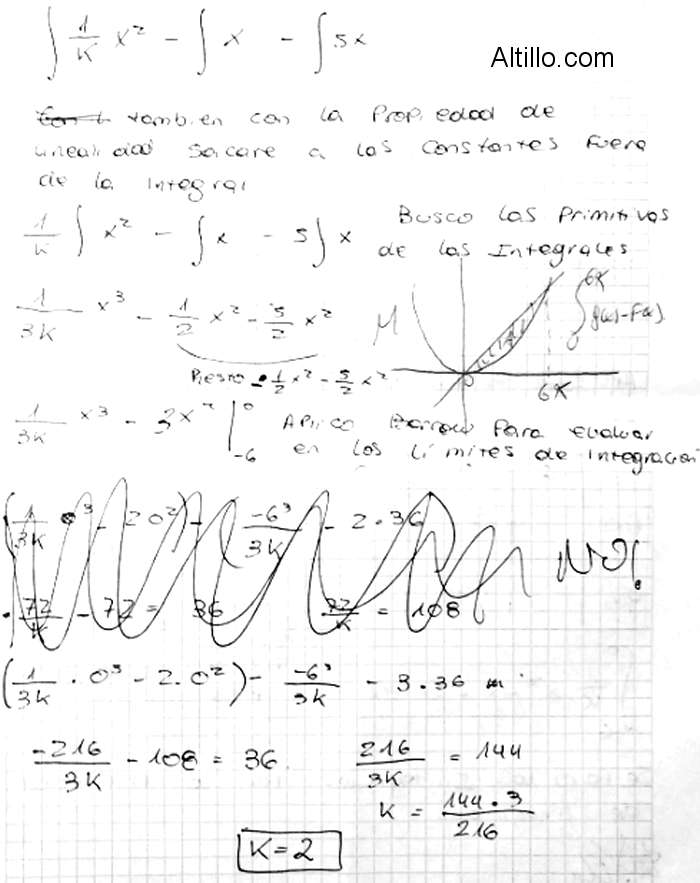 ∫ 1/K x² - ∫ x - ∫ 5x
Altillo.com
tambien con la Propiedad de
linealidad Sacare a las Constantes Fuera
de la Integral
1/K ∫ x² - ∫ x - 5∫ x
Busco las Primitivas
de las Integrales
1/3K x³ - 1/2 x² - 5/2 x²
Resto - 1/2 x² - 5/2 x²
0
6K
1/3K x³ - 3x² |⁰₋₆
Aplico Barrow Para evaluar
en los límites de integracion
(1/3K · 0³ - 2 0²) - -6³/3K - 2·36
NO!
72/K - 72 = 36
72/K = 108
(1/3K · 0³ - 2·0²) - -6³/3K - 3·36
-216/3K - 108 = 36
216/3K = 144
K = 144·3/216
K = 2